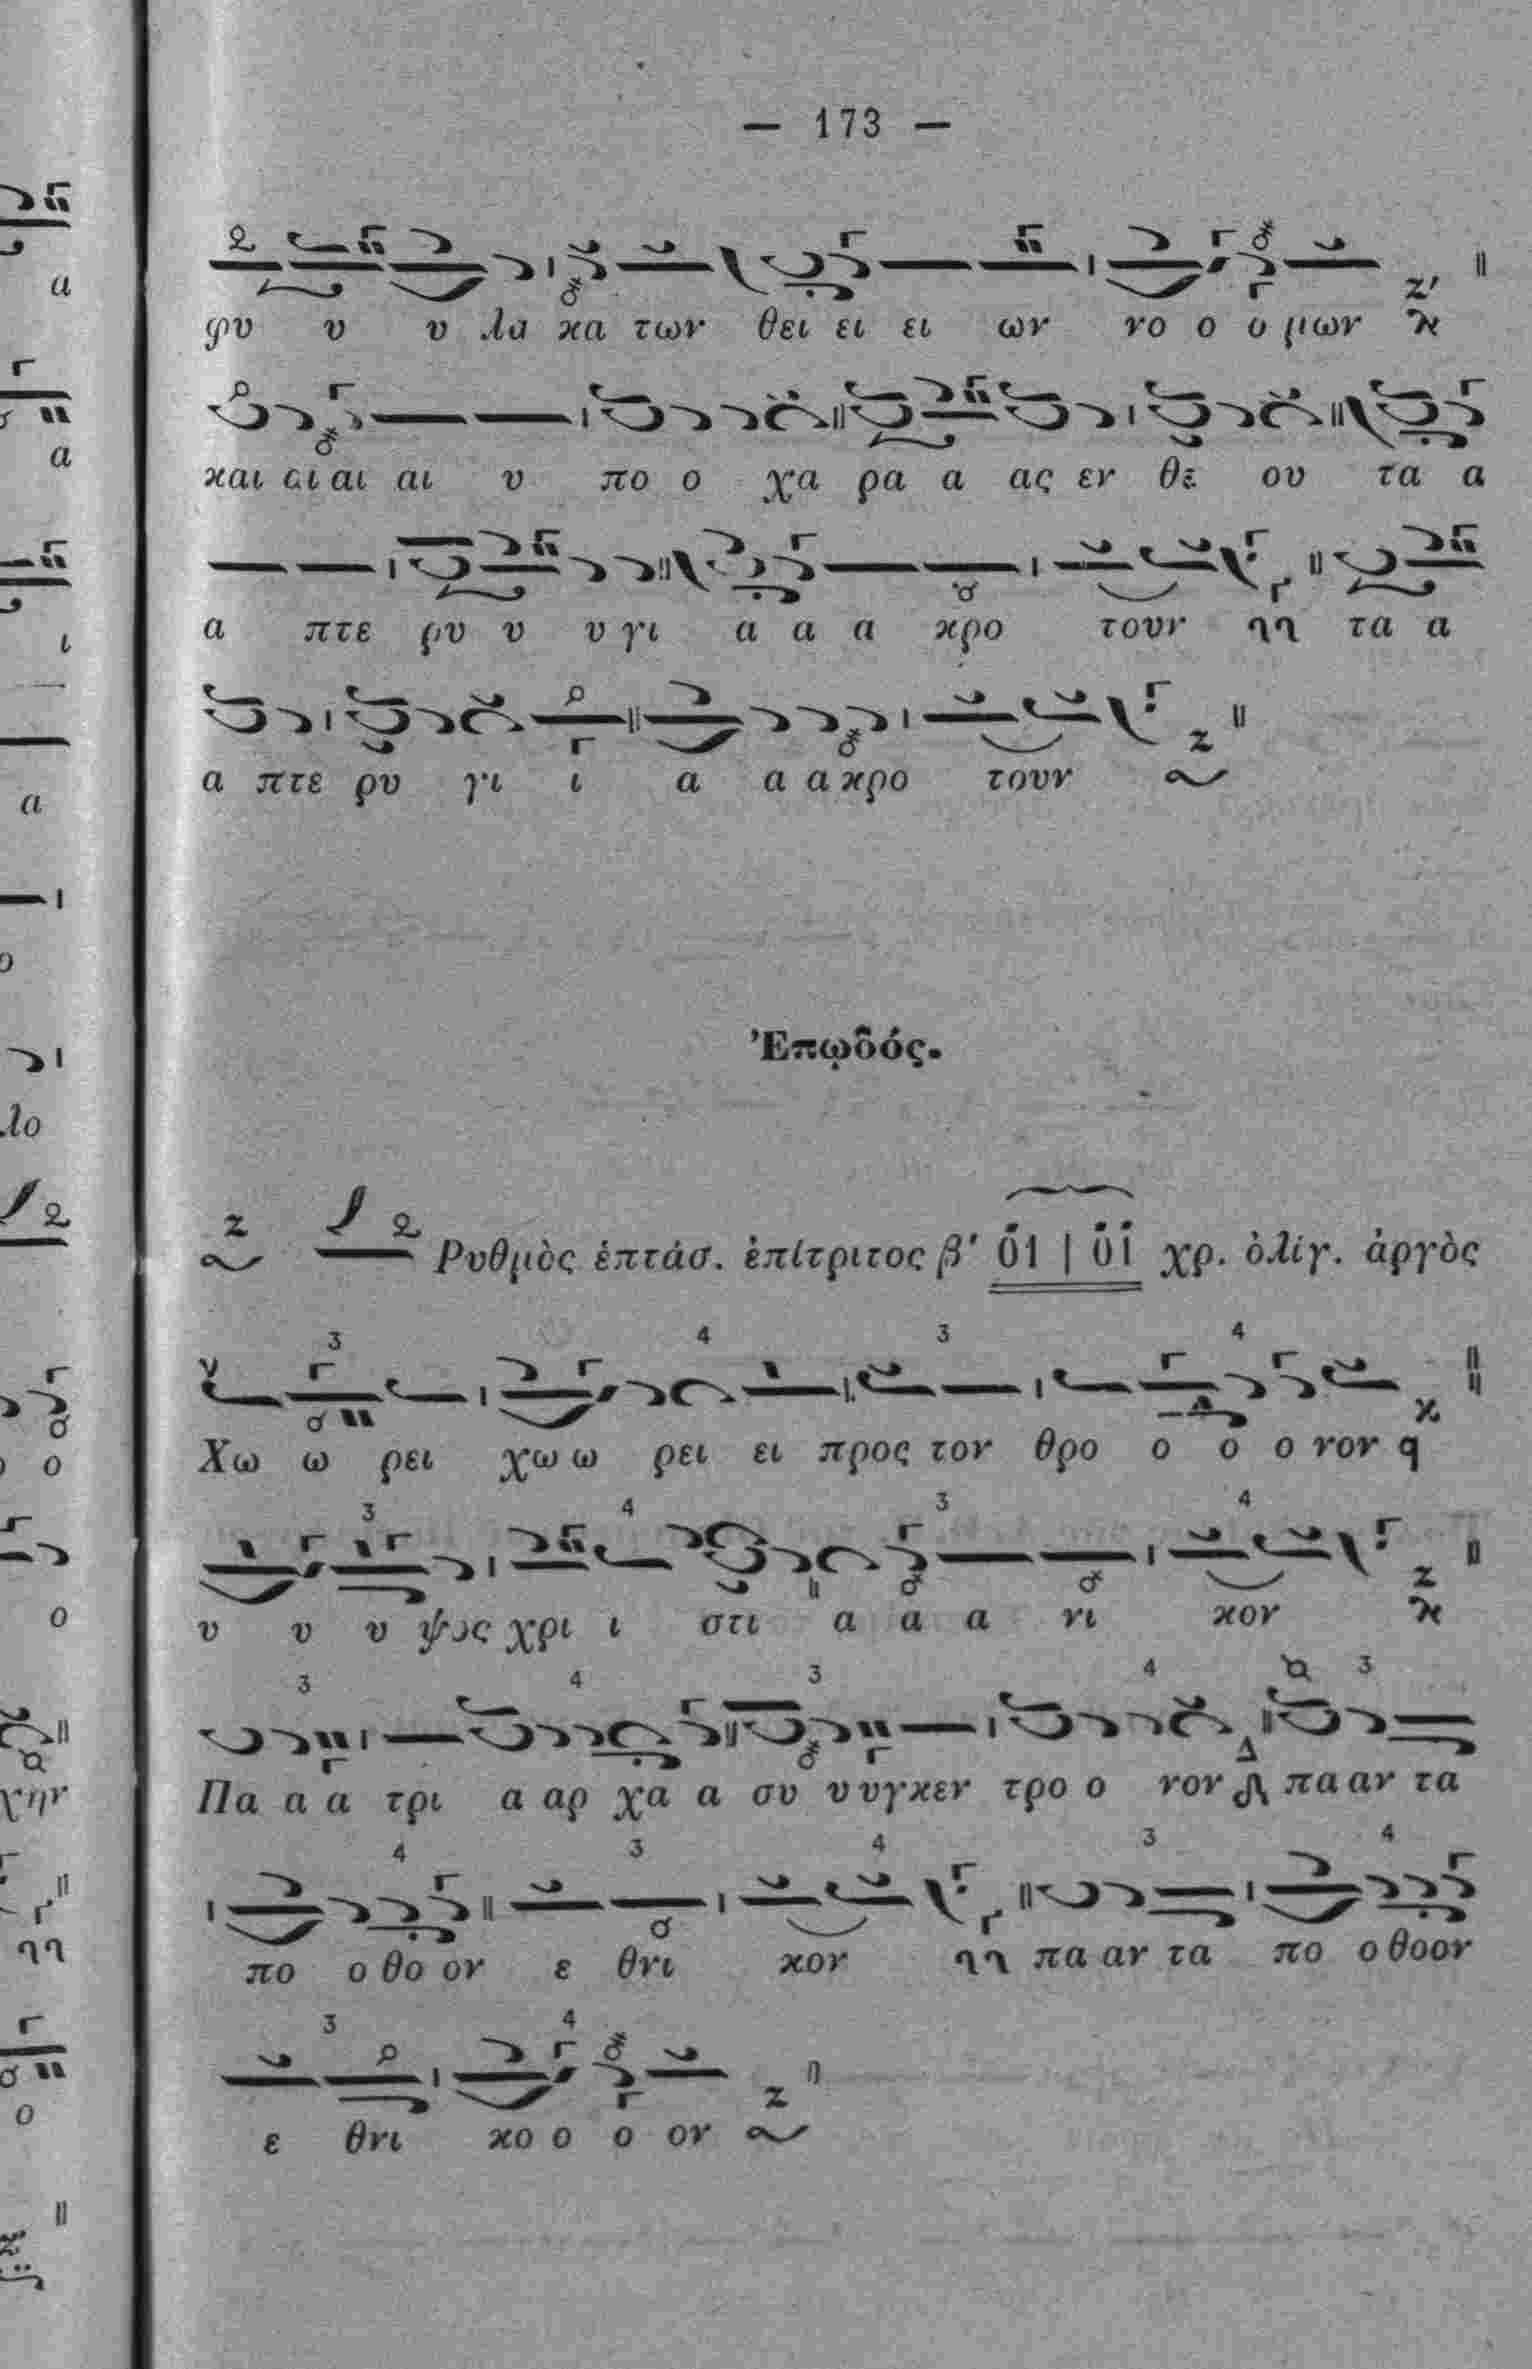 — 173 —
φυ υ υ λα κα των θει ει ει ων νο ο ο μων
και αι αι αι υ πο ο χα ρα α ας εν θε ου τα α
α πτε ρυ υ υ γι α α α κρο τουν τα α
α πτε ρυ γι ι α α α κρο τουν
Ἐπῳδός.
Ρυθμὸς ἑπτάσ. ἐπίτριτος β' 01 | 01 χρ. ὀλίγ. ἀργὸς
3 4 3 4
Χω ω ρει χω ω ρει ει προς τον θρο ο ο ο νον q
3 4 3 4
υ υ υ ψος χρι ι στι α α α νι κον
3 4 3 4 3
Πα α α τρι α αρ χα α συ υ υγκεν τρο ο νον πα αν τα
4 3 4 3 4
πο ο θο ον ε θνι κον πα αν τα πο ο θοον
3 4
ε θνι κο ο ο ον